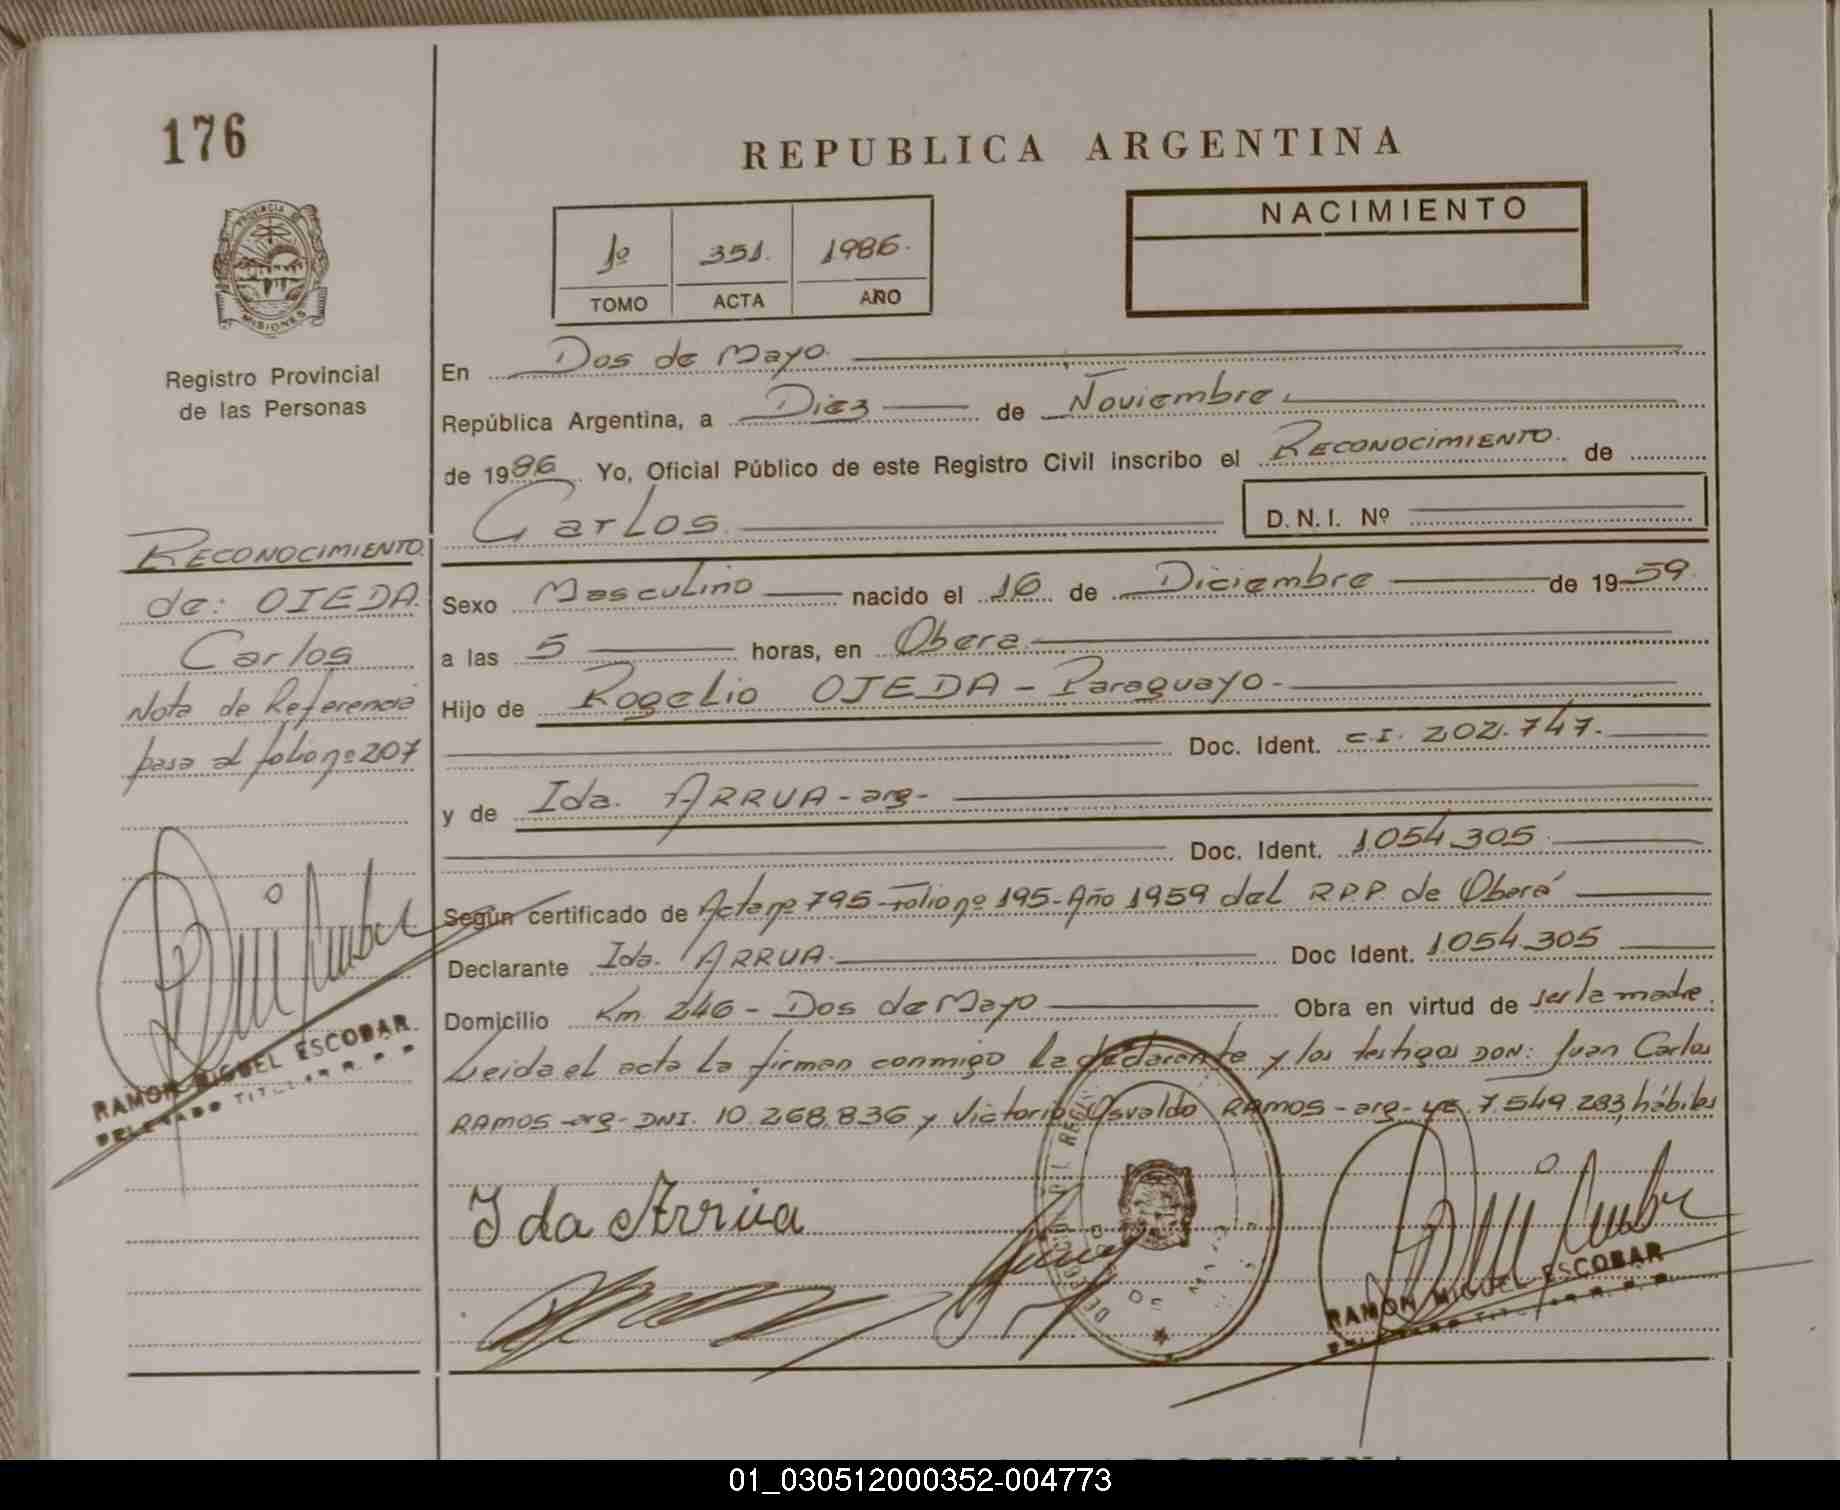 176
REPUBLICA ARGENTINA
PROVINCIA DE
MISIONES
Registro Provincial
de las Personas
1º 351. 1986.
TOMO ACTA AÑO
NACIMIENTO
En Dos de Mayo.
República Argentina, a Diez de Noviembre.
de 1986. Yo, Oficial Público de este Registro Civil inscribo el RECONOCIMIENTO. de
Carlos. D.N.I. Nº
Sexo Masculino nacido el 16 de Diciembre de 1959.
a las 5 horas, en Obera.
Hijo de Rogelio OJEDA - Paraguayo -
Doc. Ident. C.I. 202.747.
y de Ida. ARRUA - arg -
Doc. Ident. 1.054.305.
Según certificado de Acta nº 795 - Folio nº 195 - Año 1959 del R.P.P. de Oberá
Declarante Ida. ARRUA. Doc Ident. 1.054.305
Domicilio Km. 246 - Dos de Mayo Obra en virtud de ser la madre.
Leida el acta la firman conmigo la declarante y los testigos DON: Juan Carlos
RAMOS - arg - DNI. 10.268.836 y Victorio Osvaldo RAMOS - arg - 7.549.283, hábiles
RECONOCIMIENTO.
de: OJEDA.
Carlos
Nota de Referencia
pasa al folio nº 207
RAMON MIGUEL ESCOBAR
DELEGADO TITULAR R. P. P.
Ida Arrua
RAMON MIGUEL ESCOBAR
DELEGADO TITULAR R. P. P.
01_030512000352-004773